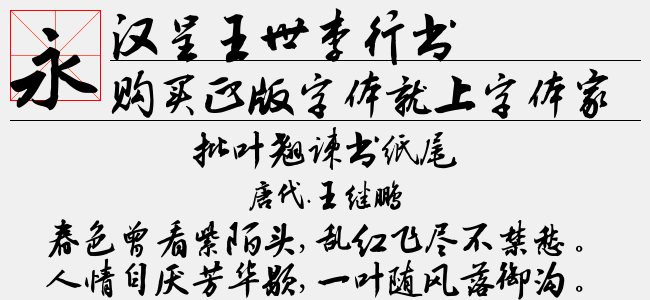 永
汉呈王世李行书
购买正版字体就上字体家
批叶翘谏书纸尾
唐代·王继鹏
春色曾看紫陌头,乱红飞尽不禁愁。
人情自厌芳华歇,一叶随风落御沟。